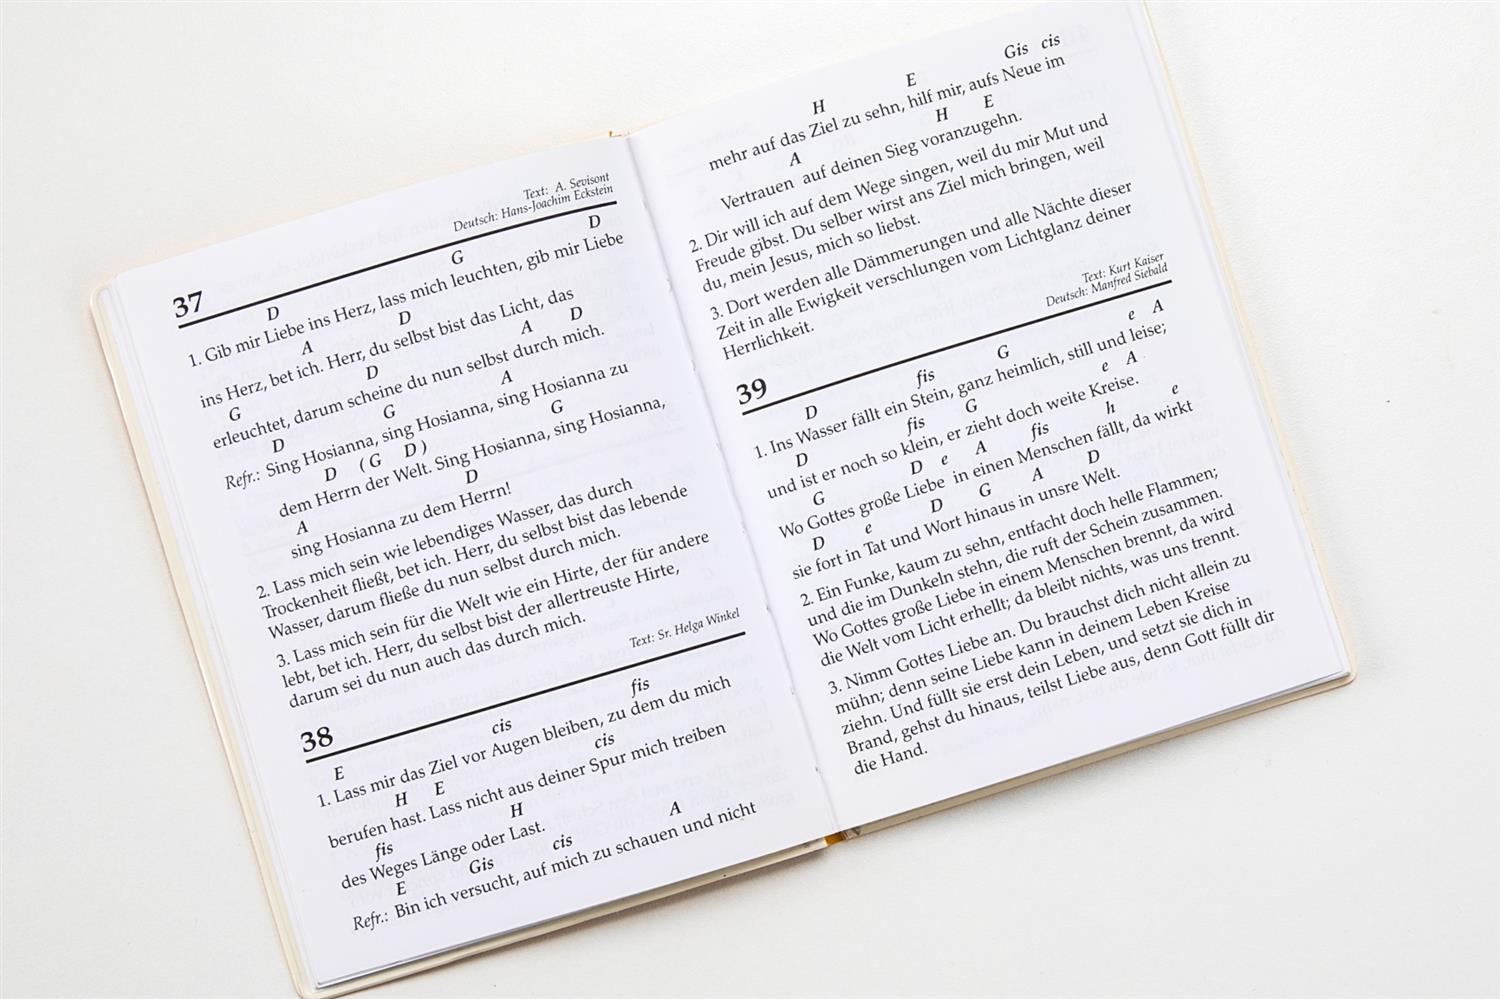 Text: A. Sevisont
Deutsch: Hans-Joachim Eckstein
37
D G D
1. Gib mir Liebe ins Herz, lass mich leuchten, gib mir Liebe
A D
ins Herz, bet ich. Herr, du selbst bist das Licht, das
G D A D
erleuchtet, darum scheine du nun selbst durch mich.
D G A
Refr.: Sing Hosianna, sing Hosianna, sing Hosianna zu
D (G D) G
dem Herrn der Welt. Sing Hosianna, sing Hosianna,
A D
sing Hosianna zu dem Herrn!
2. Lass mich sein wie lebendiges Wasser, das durch
Trockenheit fließt, bet ich. Herr, du selbst bist das lebende
Wasser, darum fließe du nun selbst durch mich.
3. Lass mich sein für die Welt wie ein Hirte, der für andere
lebt, bet ich. Herr, du selbst bist der allertreuste Hirte,
darum sei du nun auch das durch mich.
Text: Sr. Helga Winkel
38
E cis fis
1. Lass mir das Ziel vor Augen bleiben, zu dem du mich
H E cis
berufen hast. Lass nicht aus deiner Spur mich treiben
fis H
des Weges Länge oder Last.
E Gis cis A
Refr.: Bin ich versucht, auf mich zu schauen und nicht
H E Gis cis
mehr auf das Ziel zu sehn, hilf mir, aufs Neue im
A H E
Vertrauen auf deinen Sieg voranzugehn.
2. Dir will ich auf dem Wege singen, weil du mir Mut und
Freude gibst. Du selber wirst ans Ziel mich bringen, weil
du, mein Jesus, mich so liebst.
3. Dort werden alle Dämmerungen und alle Nächte dieser
Zeit in alle Ewigkeit verschlungen vom Lichtglanz deiner
Herrlichkeit.
Text: Kurt Kaiser
Deutsch: Manfred Siebald
39
D fis G e A
1. Ins Wasser fällt ein Stein, ganz heimlich, still und leise;
D fis G e A
und ist er noch so klein, er zieht doch weite Kreise.
G D e A fis h e
Wo Gottes große Liebe in einen Menschen fällt, da wirkt
D e D G A D
sie fort in Tat und Wort hinaus in unsre Welt.
2. Ein Funke, kaum zu sehn, entfacht doch helle Flammen;
und die im Dunkeln stehn, die ruft der Schein zusammen.
Wo Gottes große Liebe in einem Menschen brennt, da wird
die Welt vom Licht erhellt; da bleibt nichts, was uns trennt.
3. Nimm Gottes Liebe an. Du brauchst dich nicht allein zu
mühn; denn seine Liebe kann in deinem Leben Kreise
ziehn. Und füllt sie erst dein Leben, und setzt sie dich in
Brand, gehst du hinaus, teilst Liebe aus, denn Gott füllt dir
die Hand.